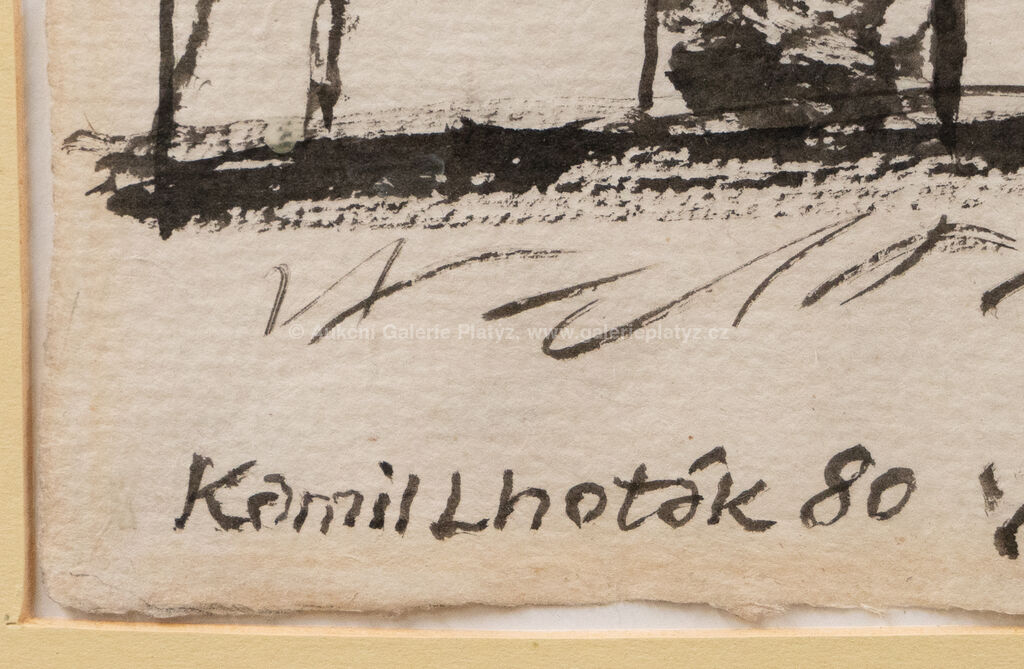 © Aukční Galerie Platýz, www.galerieplatyz.cz
Kamil Lhoták 80